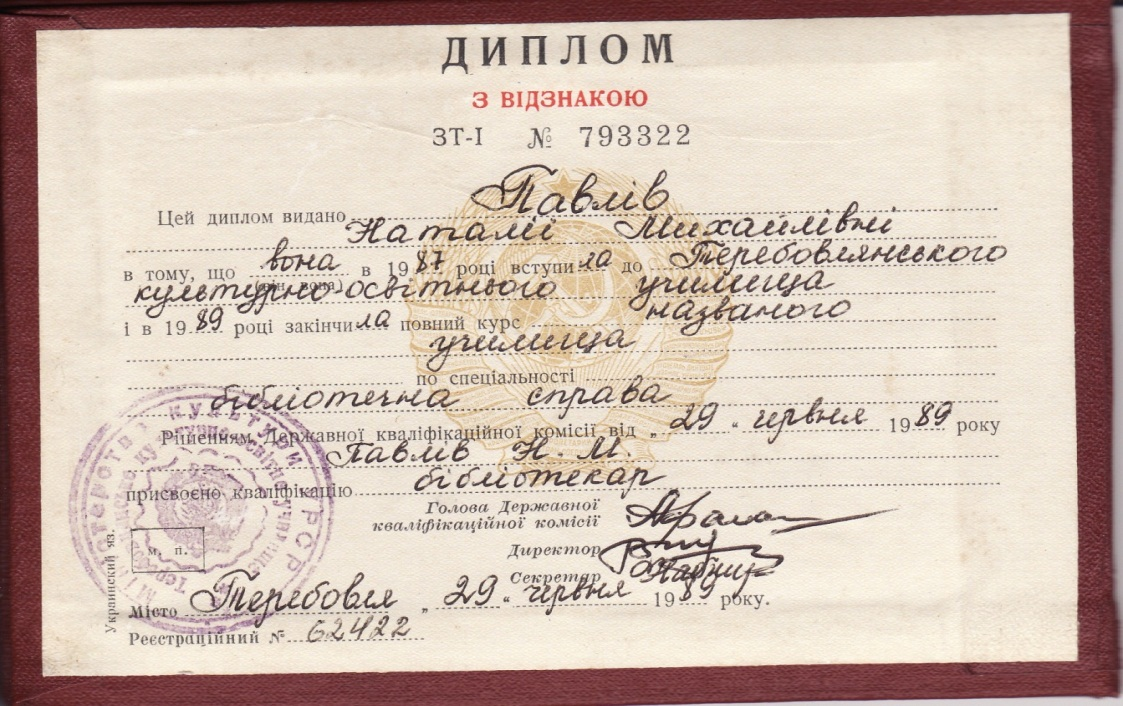 ДИПЛОМ
З ВІДЗНАКОЮ
ЗТ-І № 793322
Цей диплом видано Павлів
Наталії Михайлівні
в тому, що вона в 1987 році вступила до Теребовлянського
(він, вона)
культурно-освітнього училища
і в 1989 році закінчила повний курс названого
училища
по спеціальності
бібліотечна справа
Рішенням Державної кваліфікаційної комісії від „29" червня 1989 року
Павлів Н. М.
присвоєно кваліфікацію бібліотекар
Голова Державної
кваліфікаційної комісії
Директор
м. п.
Секретар
Місто Теребовля „29" червня 1989 року.
Реєстраційний № 62422
Украинский яз.